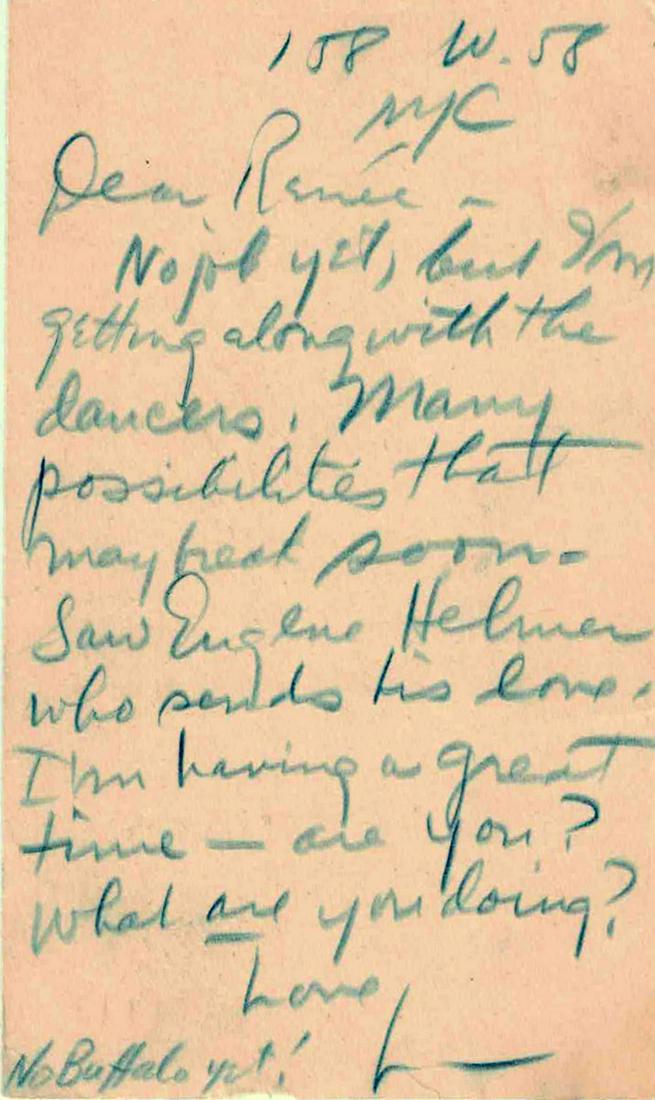 158 W. 58
NYC
Dear Renée –
No job yet, but I'm
getting along with the
dancers. Many
possibilities that
may break soon –
Saw Eugene Helmer
who sends his love.
I'm having a great
time — are you?
What are you doing?
Love
L—
No Buffalo yet!